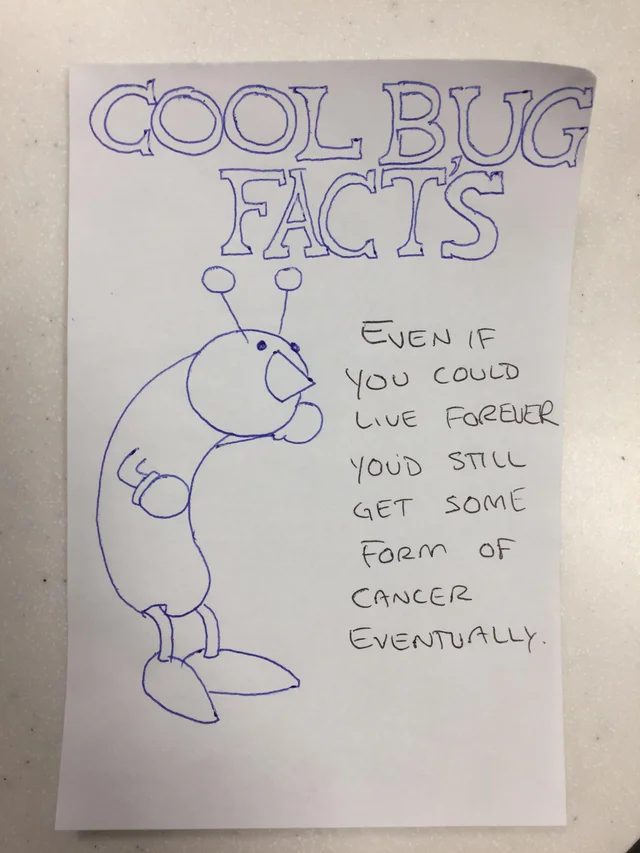 COOL BUG
FACTS
EVEN IF
YOU COULD
LIVE FOREVER
YOU'D STILL
GET SOME
FORM OF
CANCER
EVENTUALLY.